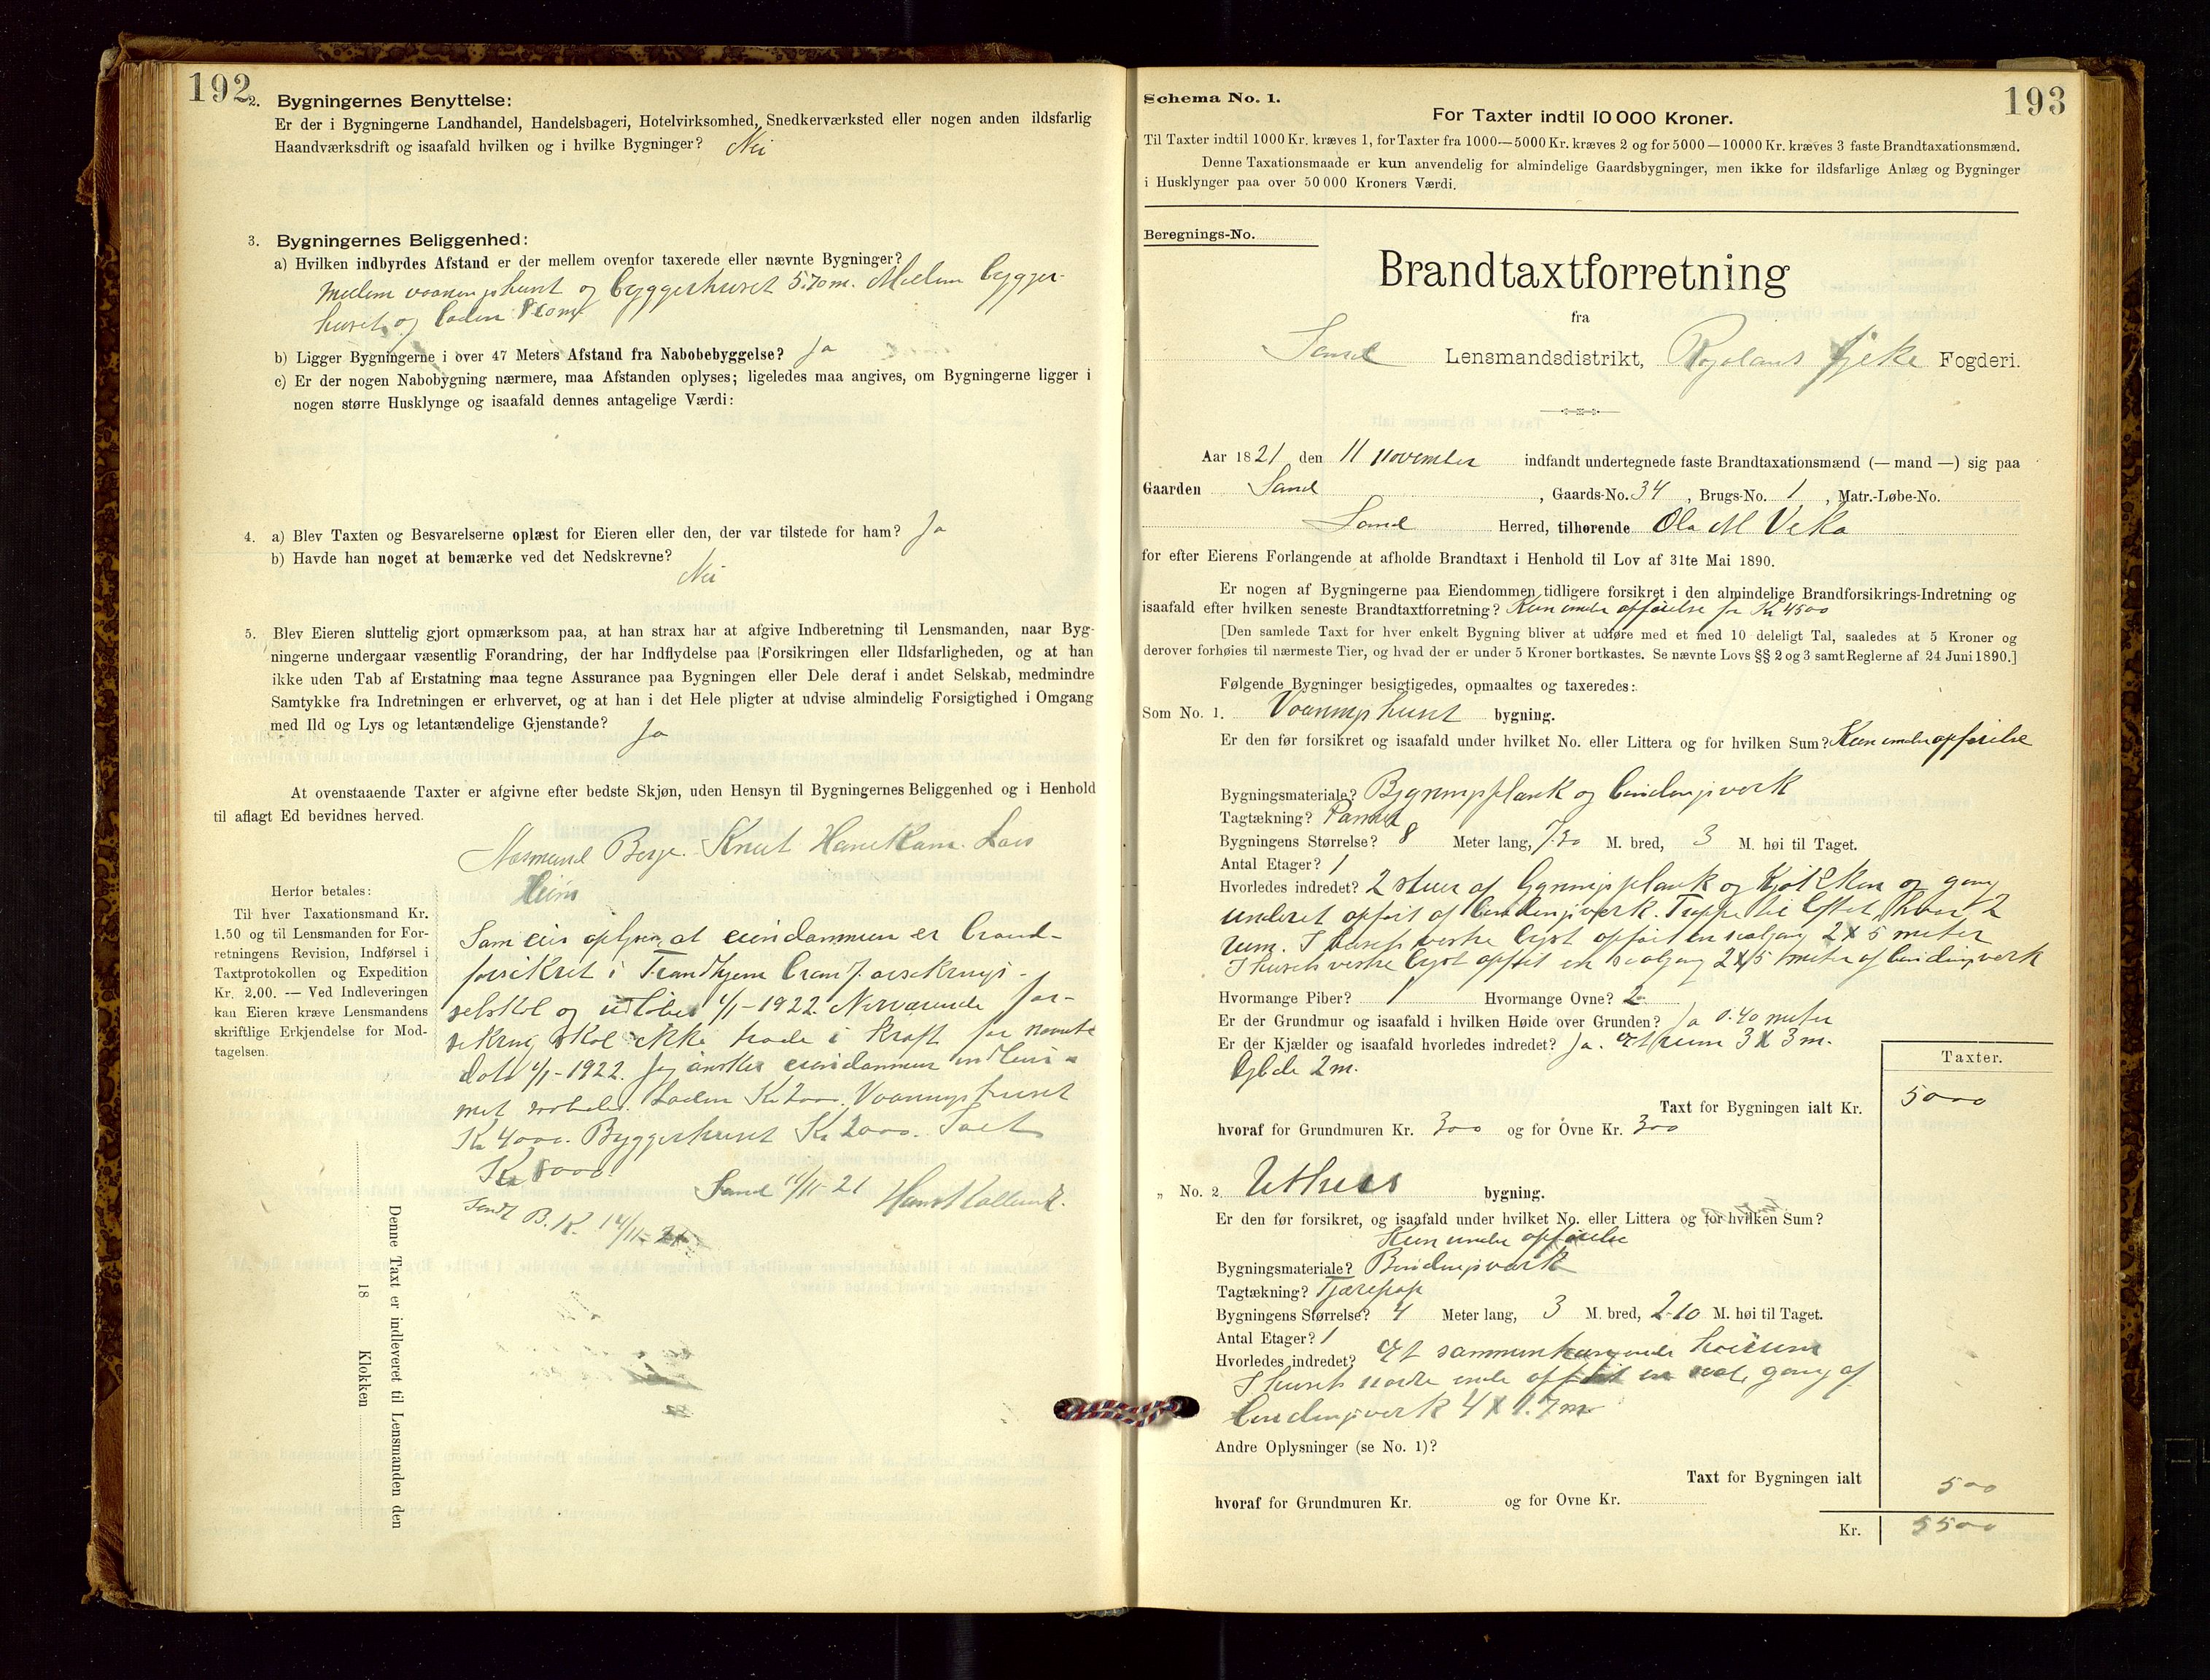 192
2. Bygningernes Benyttelse:
Er der i Bygningerne Landhandel, Handelsbageri, Hotelvirksomhed, Snedkerværksted eller nogen anden ildsfarlig
Haandværksdrift og isaafald hvilken og i hvilke Bygninger? Nei
3. Bygningernes Beliggenhed:
a) Hvilken indbyrdes Afstand er der mellem ovenfor taxerede eller nævnte Bygninger?
Mellem vaaningshuset og byggerhuset 5.70 m. Mellem bygger-
huset og laden
b) Ligger Bygningerne i over 47 Meters Afstand fra Nabobebyggelse? Ja
c) Er der nogen Nabobygning nærmere, maa Afstanden oplyses; ligeledes maa angives, om Bygningerne ligger i
nogen større Husklynge og isaafald dennes antagelige Værdi:
4. a) Blev Taxten og Besvarelserne oplæst for Eieren eller den, der var tilstede for ham? Ja
b) Havde han noget at bemærke ved det Nedskrevne?
Nei
5. Blev Eieren sluttelig gjort opmærksom paa, at han strax har at afgive Indberetning til Lensmanden, naar Byg-
ningerne undergaar væsentlig Forandring, der har Indflydelse paa Forsikringen eller Ildsfarligheden, og at han
ikke uden Tab af Erstatning maa tegne Assurance paa Bygningen eller Dele deraf i andet Selskab, medmindre
Samtykke fra Indretningen er erhvervet, og at han i det Hele pligter at udvise almindelig Forsigtighed i Omgang
med Ild og Lys og letantændelige Gjenstande? Ja
At ovenstaaende Taxter er afgivne efter bedste Skjøn, uden Hensyn til Bygningernes Beliggenhed og i Henhold
til aflagt Ed bevidnes herved.
Berge. Knut Havrekam. Lars
Heim
Herfor betales:
Til hver Taxationsmand Kr.
1.50 og til Lensmanden for For-
retningens Revision, Indførsel i
Taxtprotokollen og Expedition
Kr. 2.00. — Ved Indleveringen
kan Eieren kræve Lensmandens
skriftlige Erkjendelse for Mod-
tagelsen.
Som eier oplyses at eiendommen er brand-
forsikret i Trondhjem brandforsikrings-
selskab og utløber 1/1-1922. Nærværende for-
sikring skal ikke træde i kraft før nævnte
dato 1/1-1922. Jeg ønsker eiendommen
Laden Kr 2000. Vaaningshuset
Kr 4000. Byggerhuset Kr 2000. Ialt
Kr 8000.
Sand 11/11-21
Sendt B. K. 14/11-21
Denne Taxt er indleveret til Lensmanden den
18 Klokken
193
Schema No. 1.
For Taxter indtil 10 000 Kroner.
Til Taxter indtil 1000 Kr. kræves 1, for Taxter fra 1000—5000 Kr. kræves 2 og for 5000—10000 Kr. kræves 3 faste Brandtaxationsmænd.
Denne Taxationsmaade er kun anvendelig for almindelige Gaardsbygninger, men ikke for ildsfarlige Anlæg og Bygninger
i Husklynger paa over 50 000 Kroners Værdi.
Beregnings-No.
Brandtaxtforretning
fra
Sand Lensmandsdistrikt, Rogaland fylke Fogderi.
Aar 1821 den 11 november indfandt undertegnede faste Brandtaxationsmænd (— mand —) sig paa
Gaarden Sand, Gaards-No. 34, Brugs-No. 1, Matr.-Løbe-No.
Sand Herred, tilhørende Ola M Veka
for efter Eierens Forlangende at afholde Brandtaxt i Henhold til Lov af 31te Mai 1890.
Er nogen af Bygningerne paa Eiendommen tidligere forsikret i den almindelige Brandforsikrings-Indretning og
isaafald efter hvilken seneste Brandtaxtforretning? Kun under opførelse for Kr 4500
[Den samlede Taxt for hver enkelt Bygning bliver at udføre med et med 10 deleligt Tal, saaledes at 5 Kroner og
derover forhøies til nærmeste Tier, og hvad der er under 5 Kroner bortkastes. Se nævnte Lovs §§ 2 og 3 samt Reglerne af 24 Juni 1890.]
Følgende Bygninger besigtigedes, opmaaltes og taxeredes:
Som No. 1. Vaaningshuset bygning.
Er den før forsikret og isaafald under hvilket No. eller Littera og for hvilken Sum? Kun under opførelse
Bygningsmateriale? Bygningsplank og bindingsverk
Tagtækning? Panner
Bygningens Størrelse? 8 Meter lang, 7.30 M. bred, 3 M. høi til Taget.
Antal Etager? 1
Hvorledes indredet? 2 stuer af bygningsplank og kjøkken og gang
underet opført af bindingsverk. Trappe til loftet, hvor 2
rum. I husets vestre lyst opført en svalgang 2 X 5 meter
I husets vestre lyst opført en svalgang 2 X 5 meter af bindingsverk
Hvormange Piber? 1 Hvormange Ovne? 2
Er der Grundmur og isaafald i hvilken Høide over Grunden? Ja 0.40 meter
Er der Kjælder og isaafald hvorledes indredet? Ja. Et rum 3 X 3 m.
2 m.
Taxter.
Taxt for Bygningen ialt Kr. 5000
hvoraf for Grundmuren Kr. 300 og for Ovne Kr. 300
„ No. 2 Uthus bygning.
Er den før forsikret, og isaafald under hvilket No. eller Littera og for hvilken Sum?
Kun under opførelse
Bygningsmateriale? Bindingsverk
Tagtækning? Tjærepap
Bygningens Størrelse? 4 Meter lang, 3 M. bred, 2-10 M. høi til Taget.
Antal Etager? 1
Hvorledes indredet? Et sammenhængende
I husets nordre ende opført en sval, gang af
bindingsverk 4 X 1.7 m
Andre Oplysninger (se No. 1)?
Taxt for Bygningen ialt 500
hvoraf for Grundmuren Kr. og for Ovne Kr.
Kr. 5500